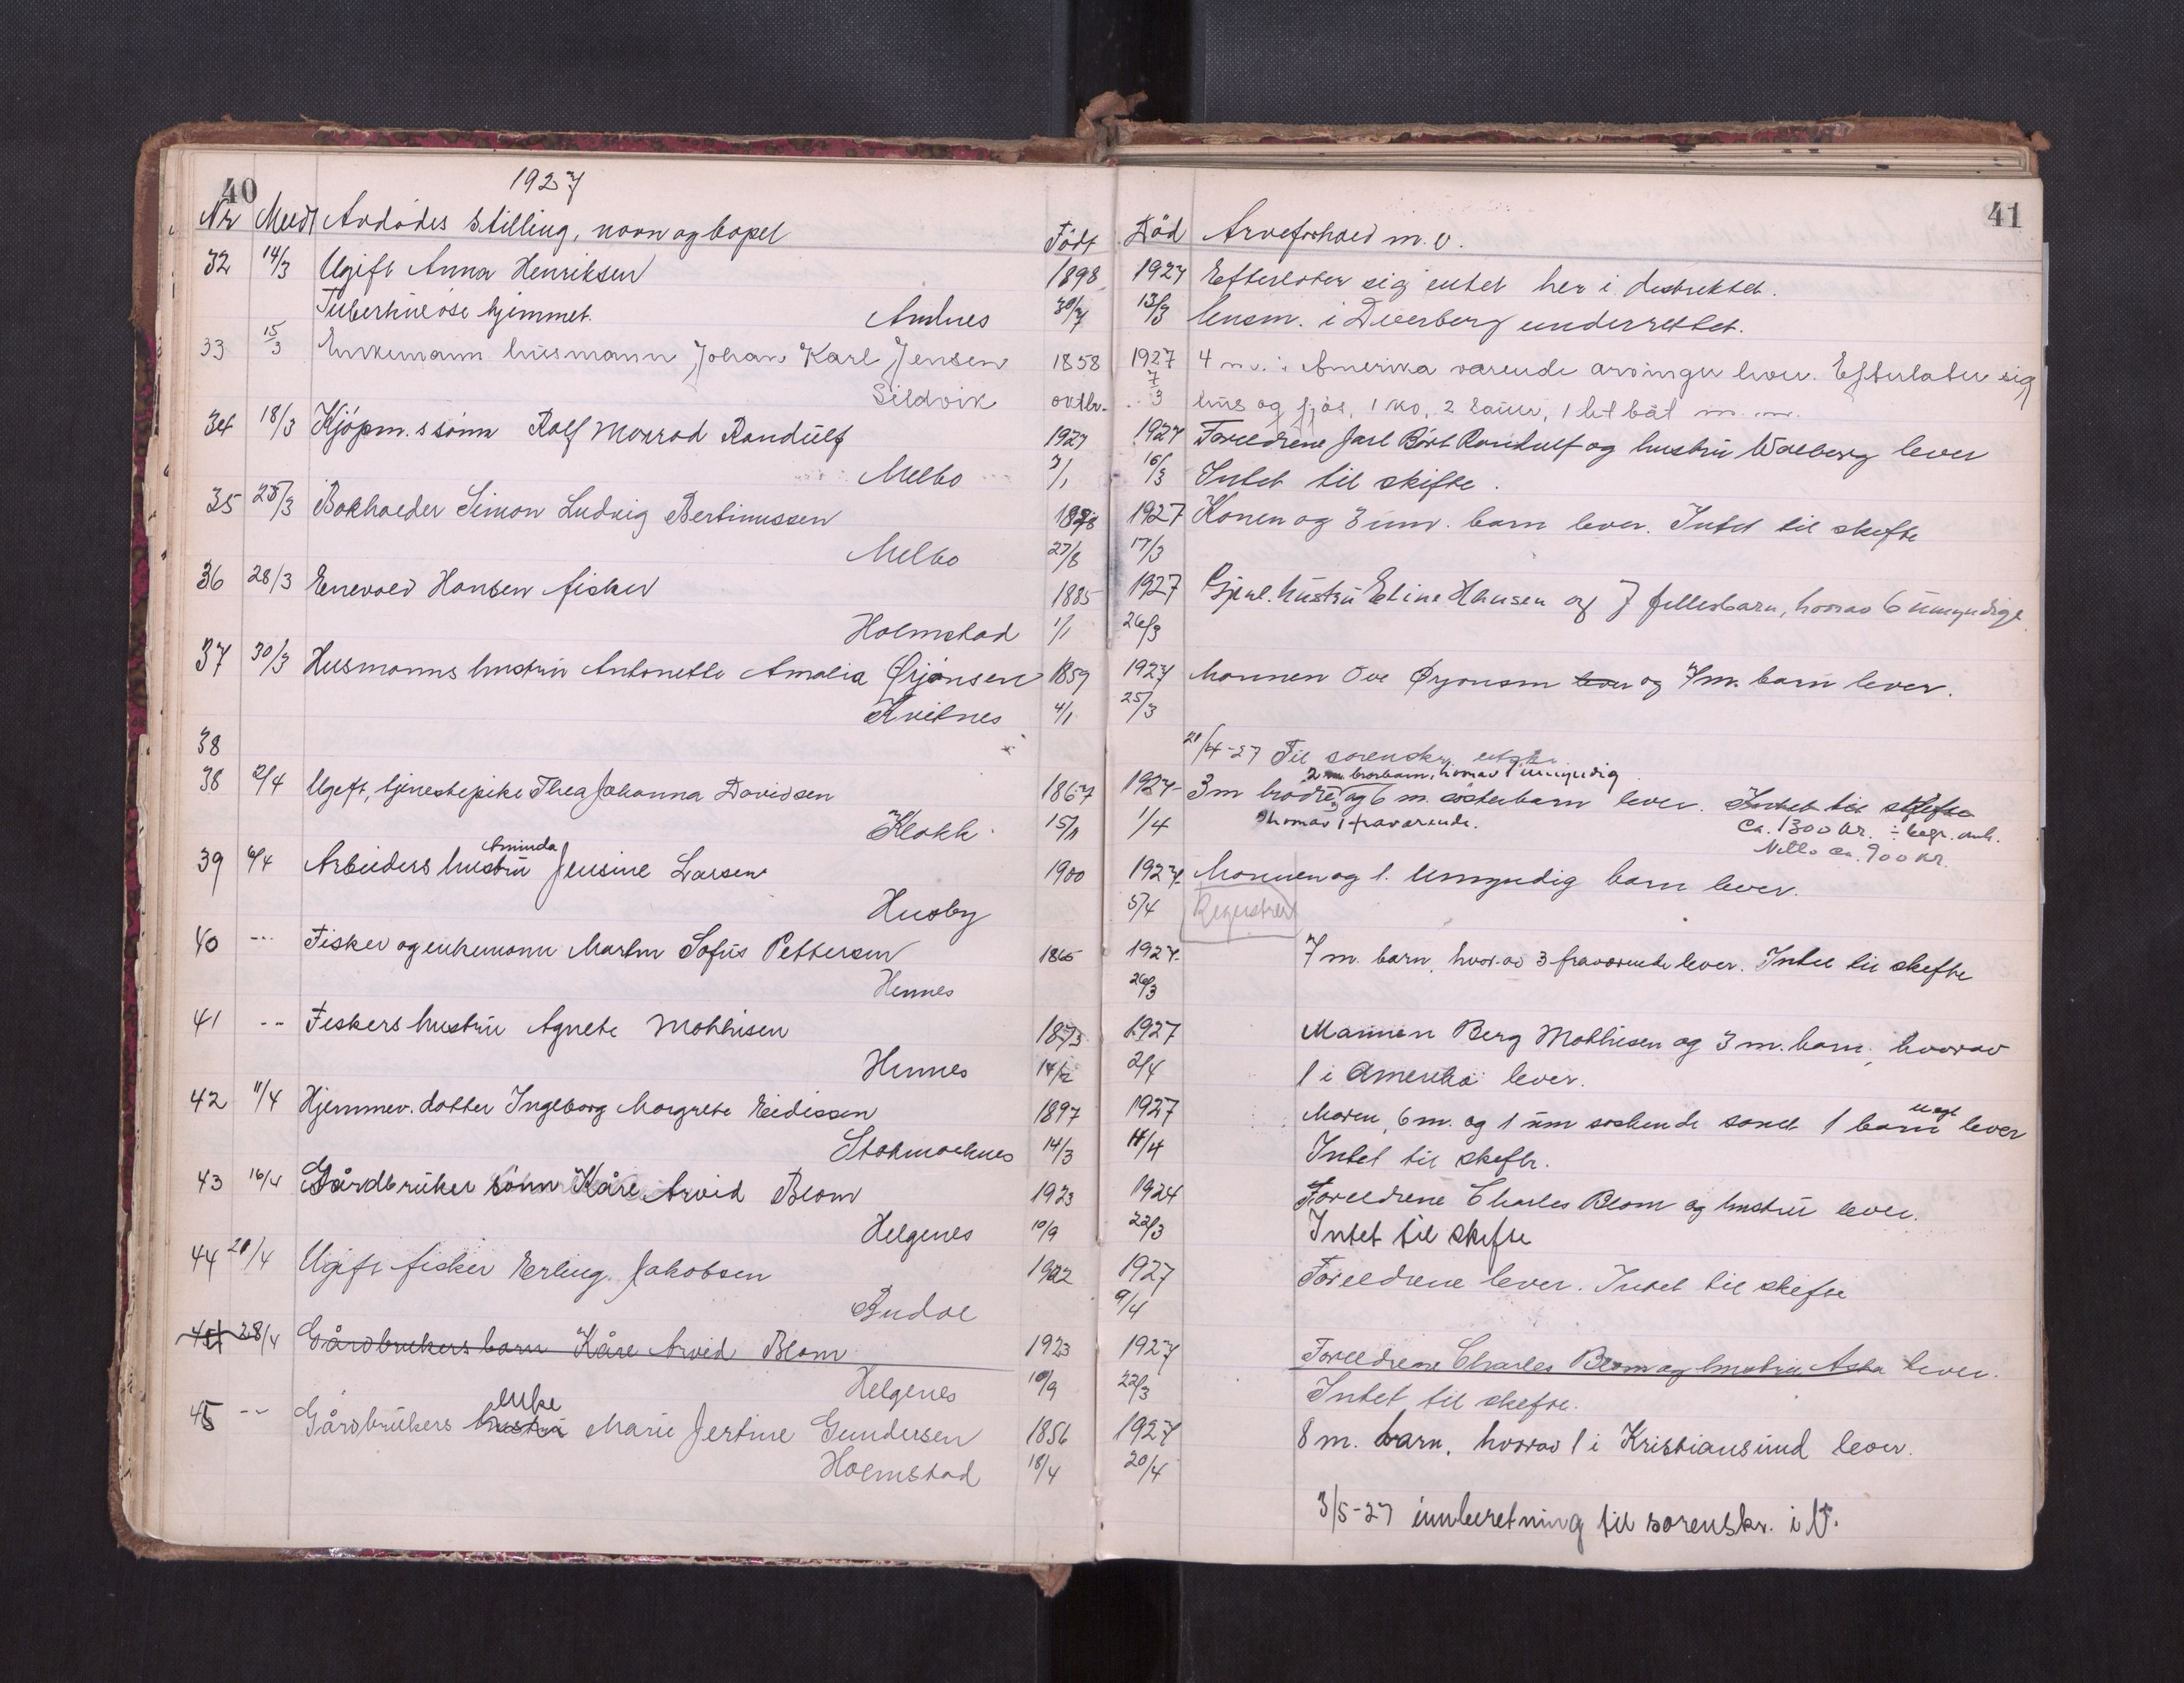 40
1927
Nr Meldt Avdødes stilling, navn og bopel Født Død Arveforhold m. v.
41
32 14/3 Ugift Anna Henriksen 1898 1927 Efterlater sig intet her i distriktet.
Tuberkulosehjemmet. Andnes 30/7 13/3 lensm. i Dverberg underrettet.
33 15/3 Enkemann husmann Johan Karl Jensen 1858 1927 4 m. i Amerika værende arvinger lever. Efterlater sig
Sildvik oktbr. 7/3 hus og fjøs, 1 ko, 2 sauer, 1 let båt m. m.
34 18/3 Kjøpm.s sønn Rolf Monrad Randulf 1927 1927 Foreldrene Jarl Børt Randulf og hustru Walberg lever
Melbo 7/1 16/3 Intet til skifte.
35 25/3 Bokholder Simon Ludvig Bertinussen 1878 1927 Konen og 3 umv. barn lever. Intet til skifte
Melbo 27/8 17/3
36 28/3 Enevold Hansen fisker 1885 1927 Gjenl. hustru Eline Hansen og 7 fellesbarn, hvorav 6 umyndige
Holmstad 1/1 26/3
37 30/3 Husmanns hustru Antonette Amalia Ørjansen 1859 1927 Mannen Ove Ørjansen lever og 7 m. barn lever.
Kvitnes 4/1 25/3
38 21/4-27 Til sorenskr.
2 m. brorbarn, hvorav 1 umyndig
38 2/4 Ugift, tjenestepike Thea Johanna Davidsen 1867 1927 3 m brødre, og 6 m. søsterbarn lever. Intet til skifte
Klakk 15/11 1/4 hvorav 1 fraværende. Ca. 1300 kr. ÷ begr. omk.
Netto ca. 900 kr.
Aminda
39 6/4 Arbeiders hustru Jensine Larsen 1900 1927 Mannen og 1. umyndig barn lever.
Husby 5/4 Registrert
40 --- Fisker og enkemann Martin Sofus Pettersen 1865 1927 7 m. barn, hvorav 3 fraværende lever. Intet til skifte
Hennes 26/3
41 -- Fiskers hustru Agnete Mathisen 1873 1927 Mannen Berg Mathisen og 3 m. barn, hvorav
Hennes 14/2 2/4 1 i Amerika lever.
42 11/4 Hjemmev. datter Ingeborg Margrete Eidissen 1897 1927 Moren, 6 m. og 1 um søskende samt 1 uegt barn lever
Stokmarknes 14/3 11/4 Intet til skifte.
43 16/4 Gårdbruker sønn Kåre Arvid Blom 1923 1924 Foreldrene Charles Blom og hustru lever.
Helgenes 10/9 22/3 Intet til skifte
44 20/4 Ugift fisker Erling Jakobsen 1922 1927 Foreldrene lever. Intet til skifte
Budal 9/4
45 28/4 Gårdbrukers barn Kåre Arvid Blom 1923 1927 Foreldrene Charles Blom og hustru Asta lever.
Helgenes 10/9 22/3 Intet til skifte.
enke
45 -- Gårdbrukers hustru Marie Jertine Gundersen 1856 1927 8 m. barn, hvorav 1 i Kristiansund lever.
Holmstad 18/4 20/4
3/5-27 innberetning til sorenskr. i V.